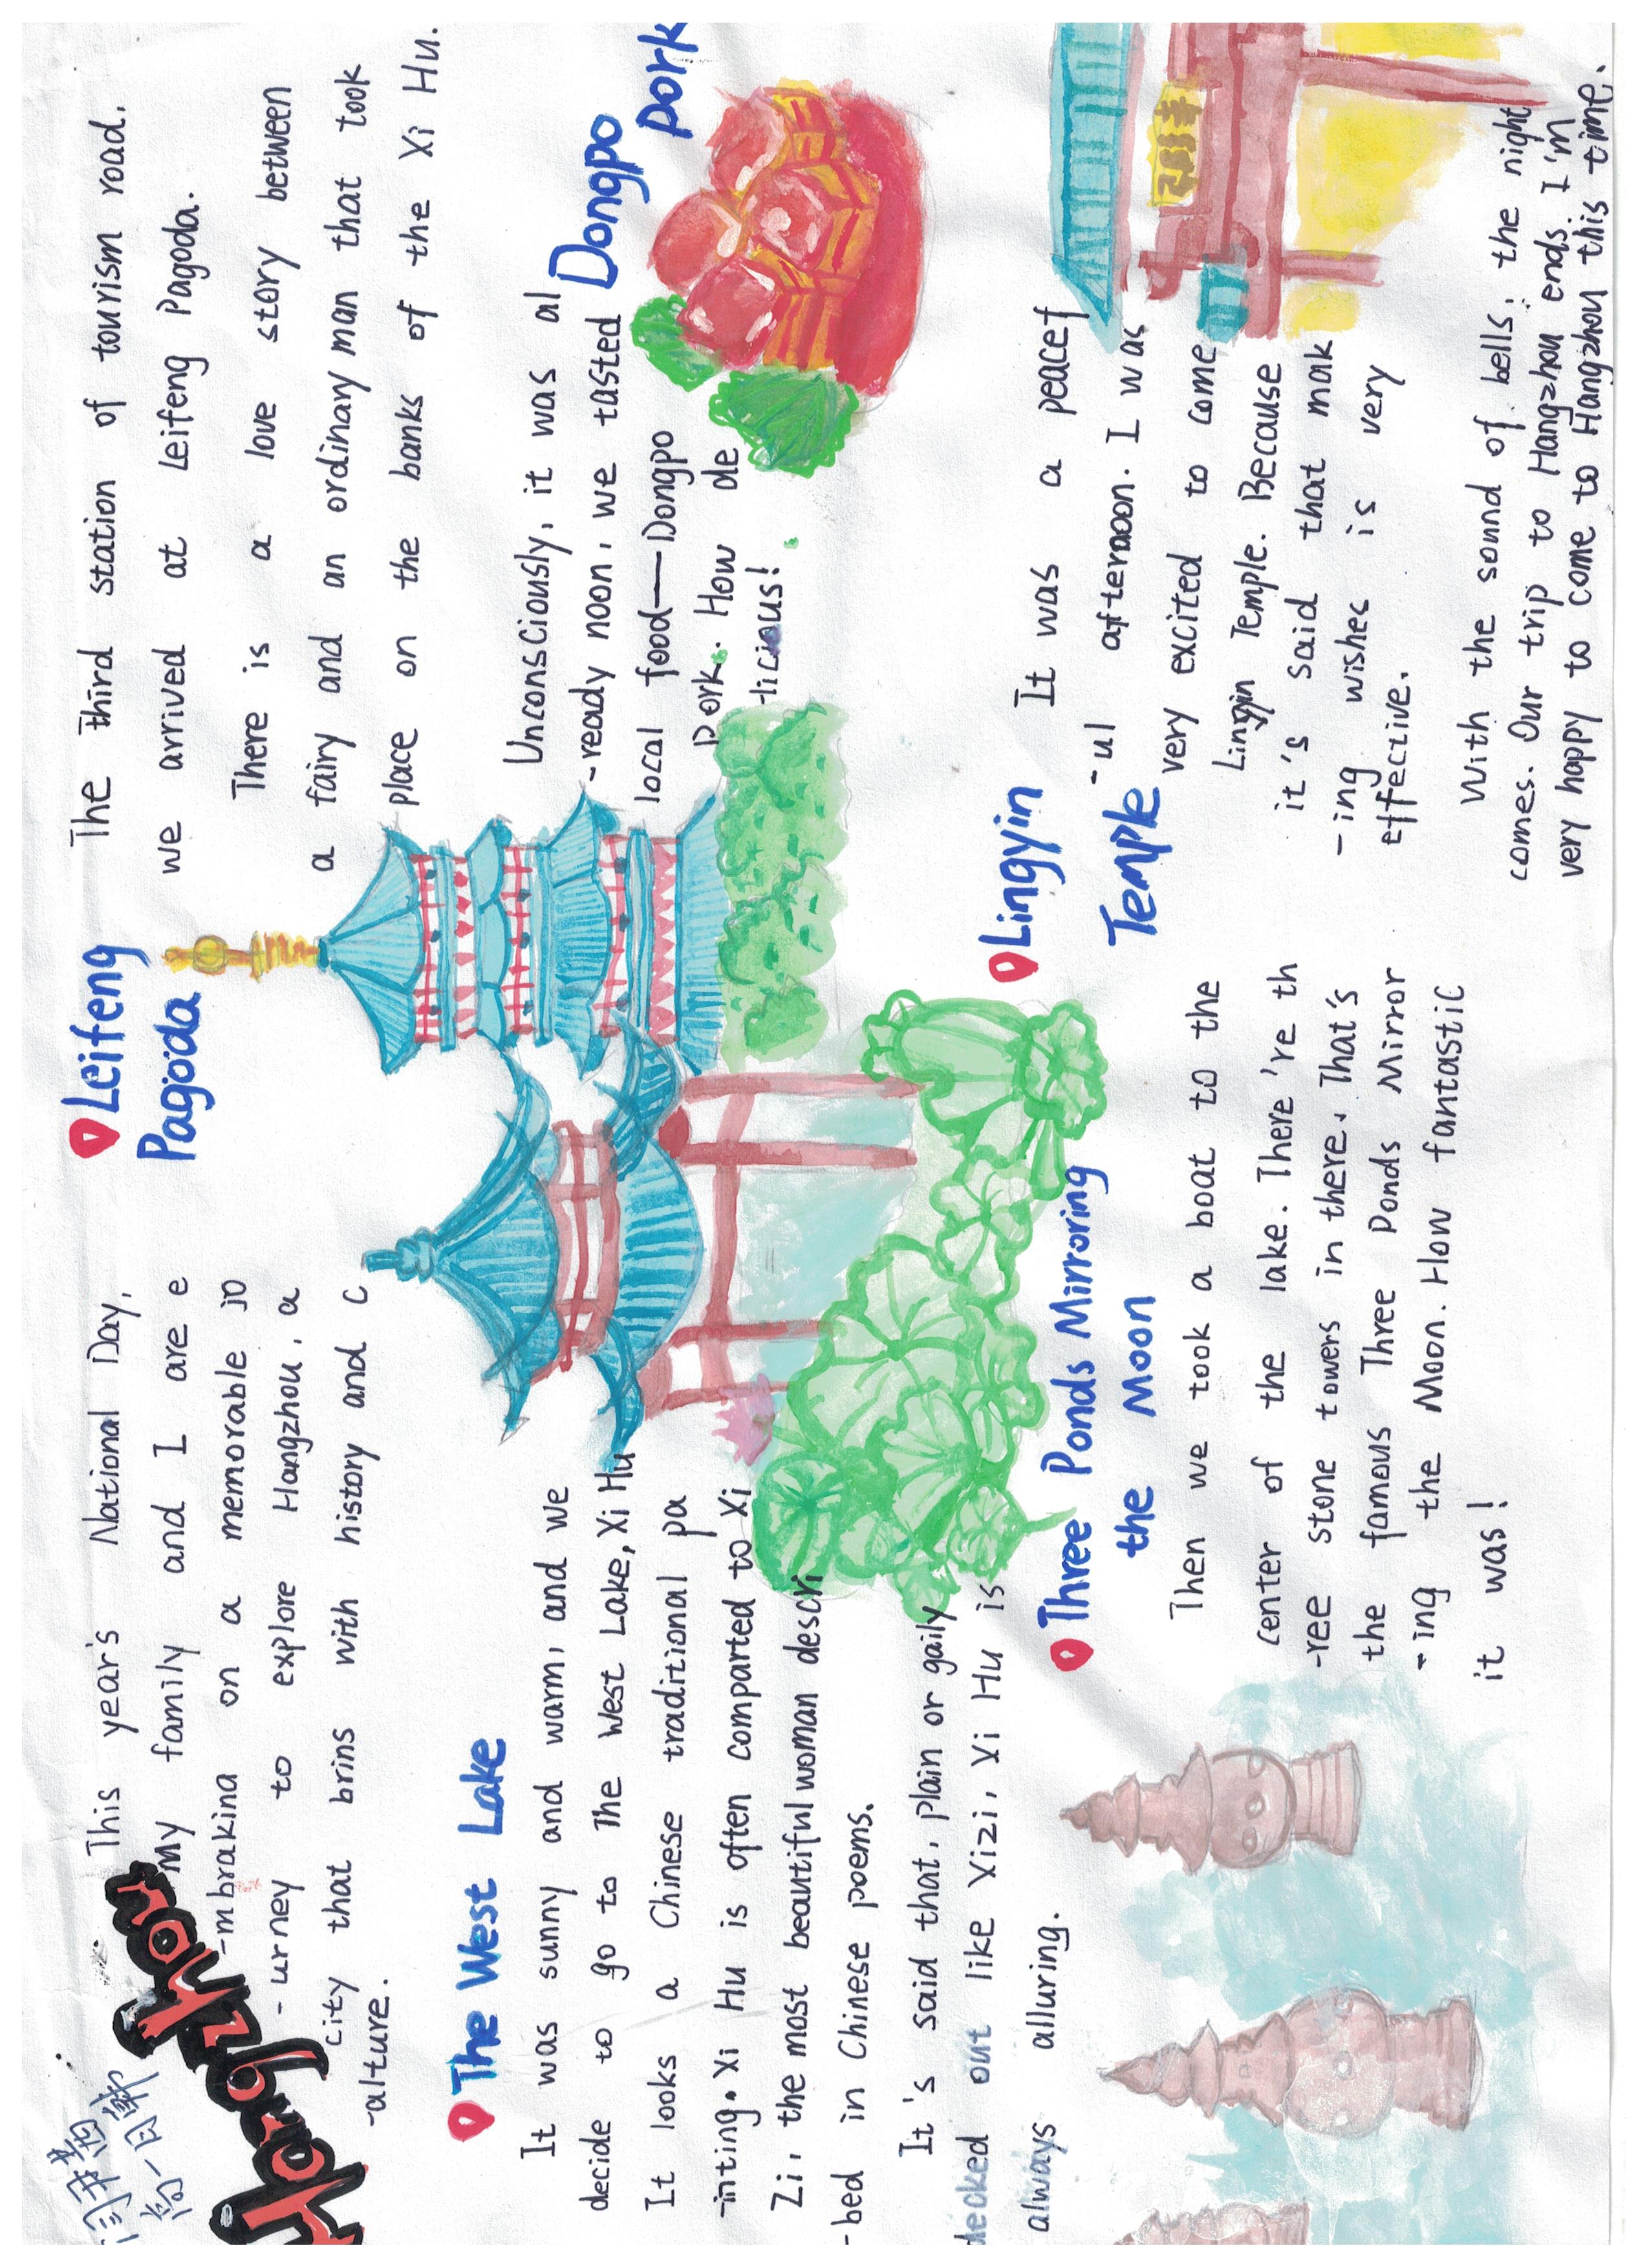 Hangzhou
This year's National Day,
My family and I are e
-mbrakina on a memorable jo
-urney to explore Hangzhou, a
city that brins with history and c
-alture.
The West Lake
It was sunny and warm, and we
decide to go to The West Lake, Xi Hu
It looks a Chinese traditional pa
-inting. Xi Hu is often comparted to Xi
Zi, the most beautiful woman descri
-bed in Chinese poems.
It's said that, plain or gaily
decked out like Xizi, Xi Hu is
always alluring.
Three Ponds Mirroring
the Moon
Then we took a boat to the
center of the lake. There're th
-ree stone towers in there. That's
the famous Three Ponds Mirror
-ing the Moon. How fantastic
it was!
Leifeng
Pagoda
The Third station of tourism road,
we arrived at Leifeng Pagoda.
There is a love story between
a fairy and an ordinary man that took
place on the banks of the Xi Hu.
Unconsciously, it was al
-ready noon, we tasted
local food——Dongpo
pork. How de
-licious!
Dongpo
pork
Lingyin
Temple
It was a peacef
-ul afternoon. I was
very excited to come
Lingyin Temple. Because
it's said that mak
-ing wishes is very
effective.
With the sound of bells, the night
comes. Our trip to Hangzhou ends. I'm
very happy to come to Hangzhou this time.